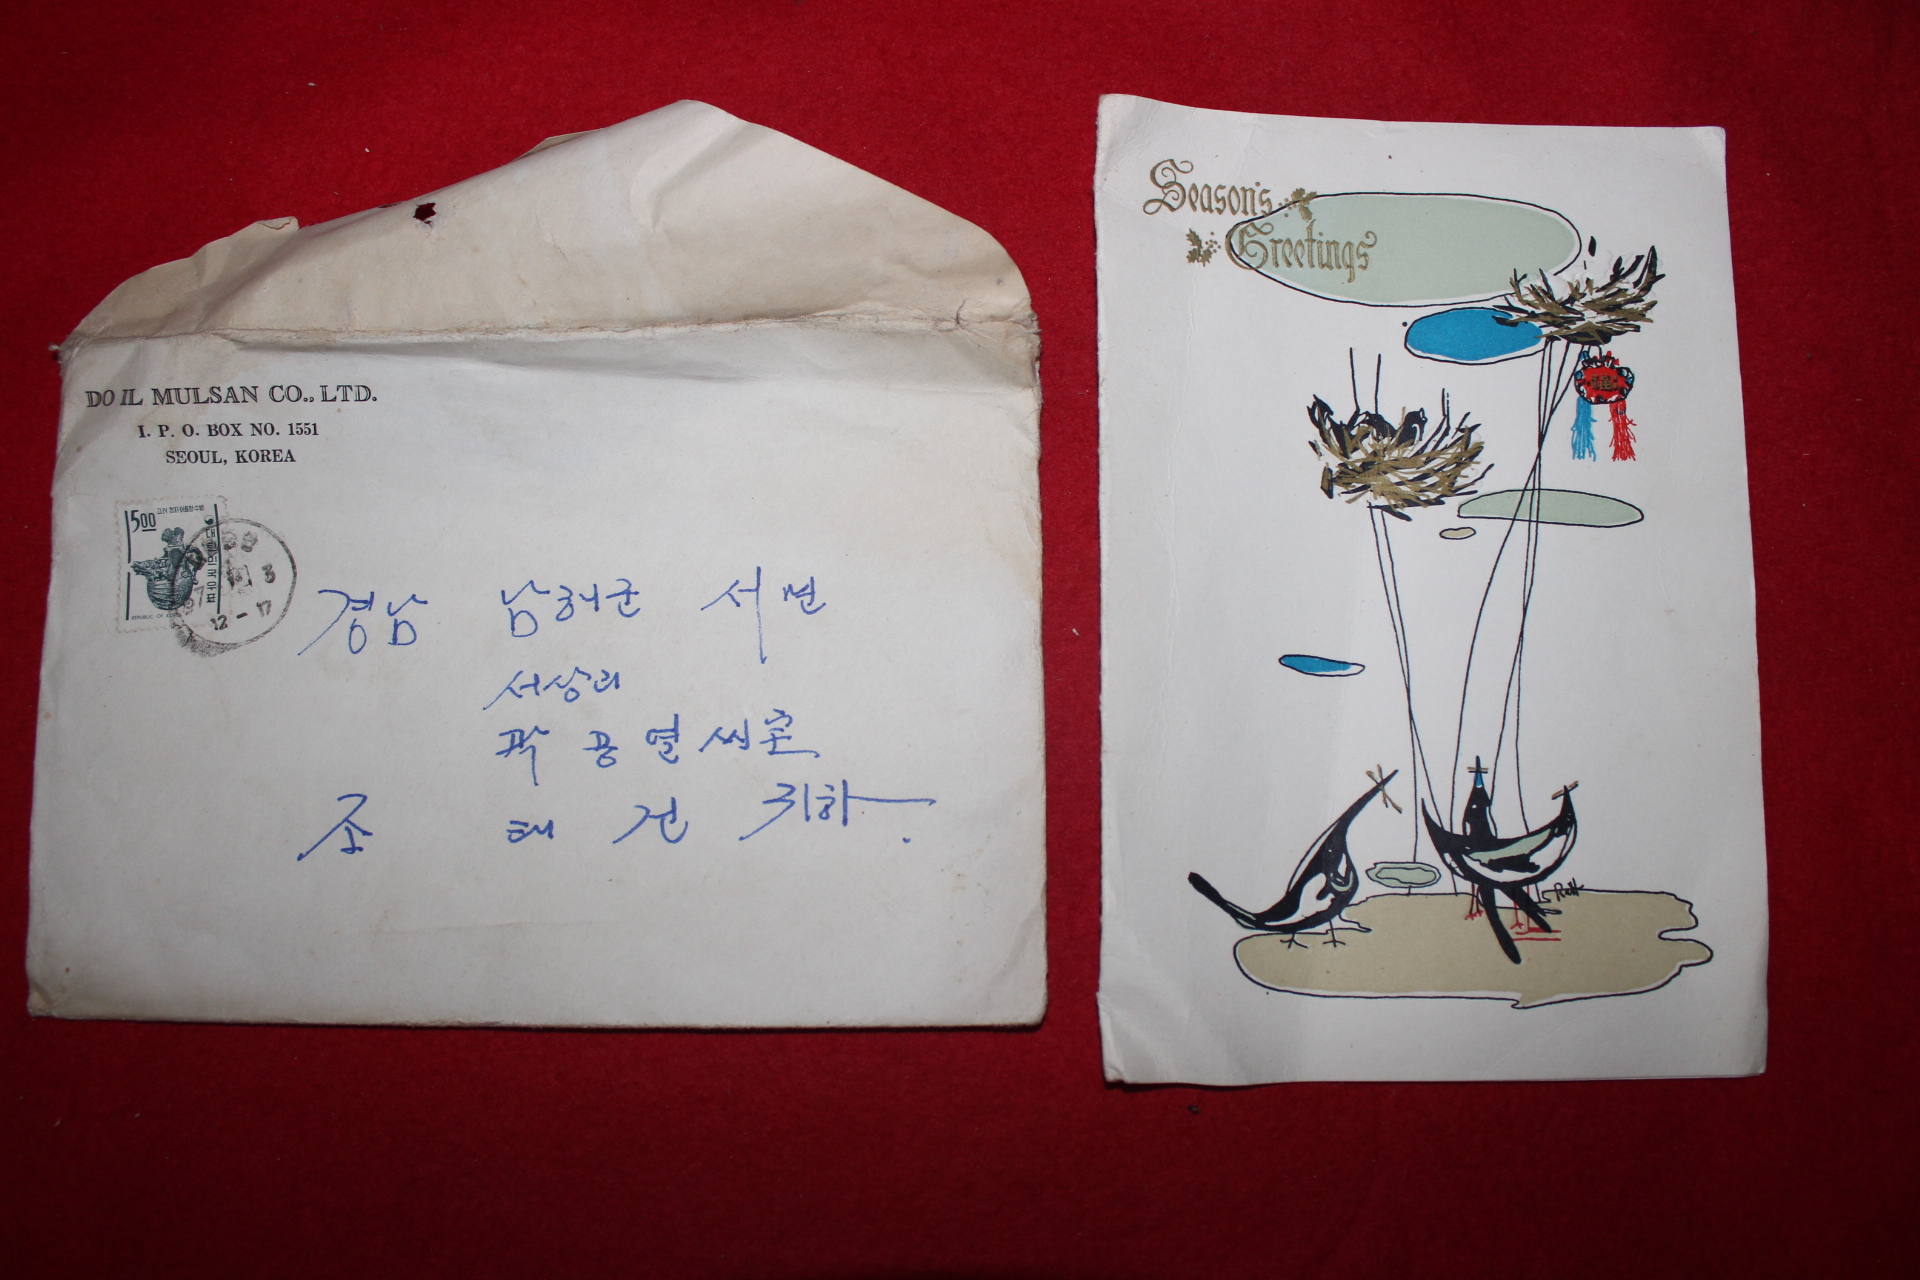 DO IL MULSAN CO., LTD.
I. P. O. BOX NO. 1551
SEOUL, KOREA
500
대한민국우표
REPUBLIC OF
3
12 - 17
경남 남해군 서면
서상리
곽 용 열 씨 宅
조 태 건 귀하.
Season's
Greetings
福